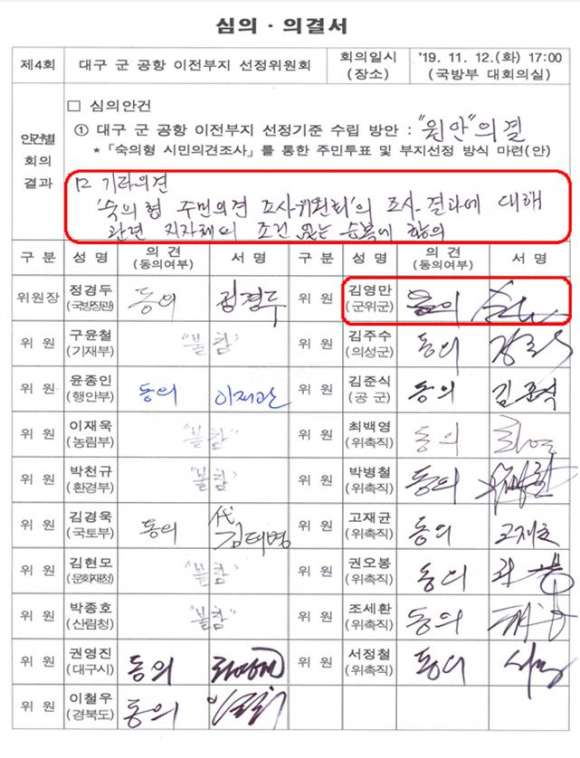 심의 · 의결서
제4회 대구 군 공항 이전부지 선정위원회 회의일시 (장소) '19. 11. 12.(화) 17:00 (국방부 대회의실)
안건별 회의 결과
□ 심의안건
① 대구 군 공항 이전부지 선정기준 수립 방안 : "원안"의결
*「숙의형 시민의견조사」를 통한 주민투표 및 부지선정 방식 마련(안)
□ 기타의견
'숙의형 주민의견 조사위원회'의 조사 결과에 대해
관련 지자체의 조건 없는 승복에 합의
구 분 성 명 의 견 (동의여부) 서 명 구 분 성 명 의 견 (동의여부) 서 명
위원장 정경두 (국방장관) 동의 정경두 위 원 김영만 (군위군) 동의
위 원 구윤철 (기재부) "불참" 위 원 김주수 (의성군) 동의
위 원 윤종인 (행안부) 동의 이재관 위 원 김준식 (공 군) 동의 김준식
위 원 이재욱 (농림부) "불참" 위 원 최백영 (위촉직) 동의
위 원 박천규 (환경부) "불참" 위 원 박병철 (위촉직) 동의
위 원 김경욱 (국토부) 동의 代 김태병 위 원 고재균 (위촉직) 동의
위 원 김현모 (문화재청) "불참" 위 원 권오봉 (위촉직) 동의
위 원 박종호 (산림청) "불참" 위 원 조세환 (위촉직) 동의
위 원 권영진 (대구시) 동의 위 원 서정철 (위촉직) 동의
위 원 이철우 (경북도) 동의